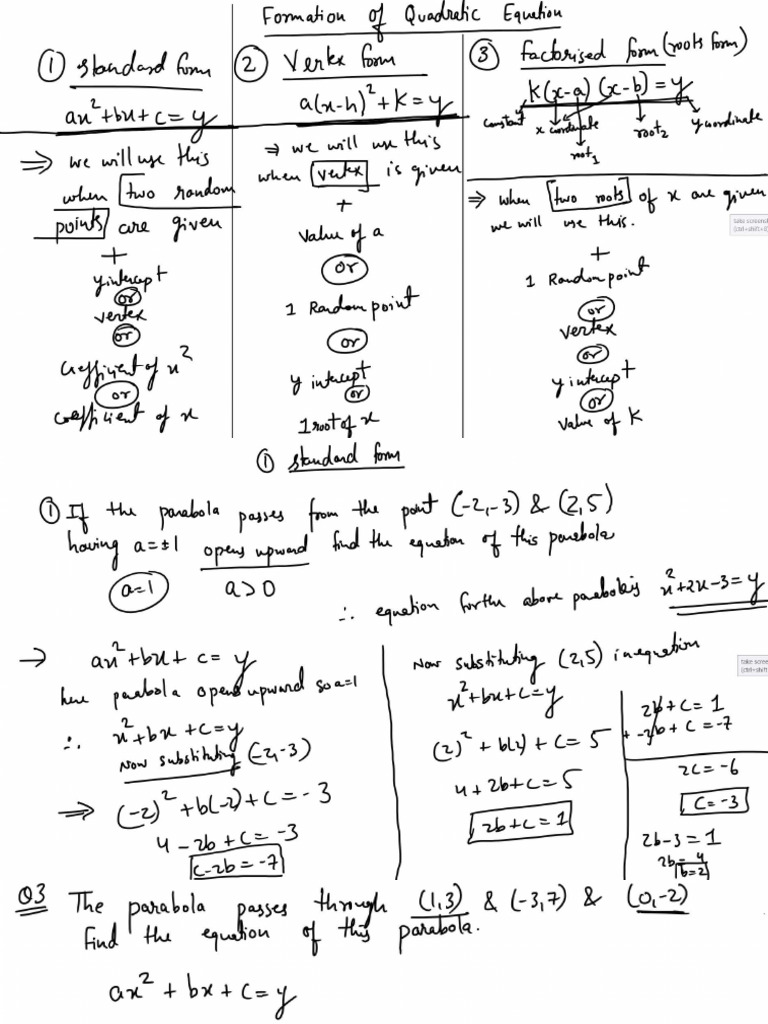 Formation of Quadratic Equation
① standard form
ax²+bx+c=y
⇒ we will use this
when two random
points are given
+
y intercept
or
vertex
or
Coefficient of x²
or
coefficient of x
② Vertex form
a(x-h)²+K=y
⇒ we will use this
when vertex is given
+
Value of a
or
1 Random point
or
y intercept
or
1 root of x
③ factorised form (roots form)
K(x-a)(x-b)=y
constant x coordinate root₁ root₂ y coordinate
⇒ when two roots of x are given
we will use this.
+
1 Random point
or
vertex
or
y intercept
or
value of K
① standard form
① If the parabola passes from the point (-2,-3) & (2,5)
having a=±1 opens upward find the equation of this parabola
a=1 a>0
∴ equation for the above parabola is x²+2x-3=y
→ ax²+bx+c=y
here parabola opens upward so a=1
∴ x²+bx+c=y
Now substituting (-2,-3)
⇒ (-2)²+b(-2)+c=-3
4-2b+c=-3
c-2b=-7
Now substituting (2,5) in equation
x²+bx+c=y
(2)²+b(2)+c=5
4+2b+c=5
2b+c=1
2b+c=1
+ -2b+c=-7
2c=-6
c=-3
2b-3=1
2b=4
b=2
Q3 The parabola passes through (1,3) & (-3,7) & (0,-2)
Find the equation of this parabola.
ax²+bx+c=y